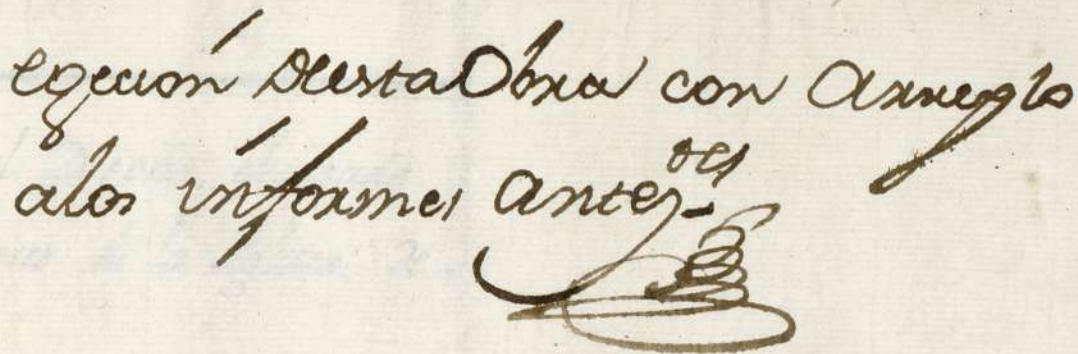 egecion deesta Obra con Arreglo
alos informes Antez.des